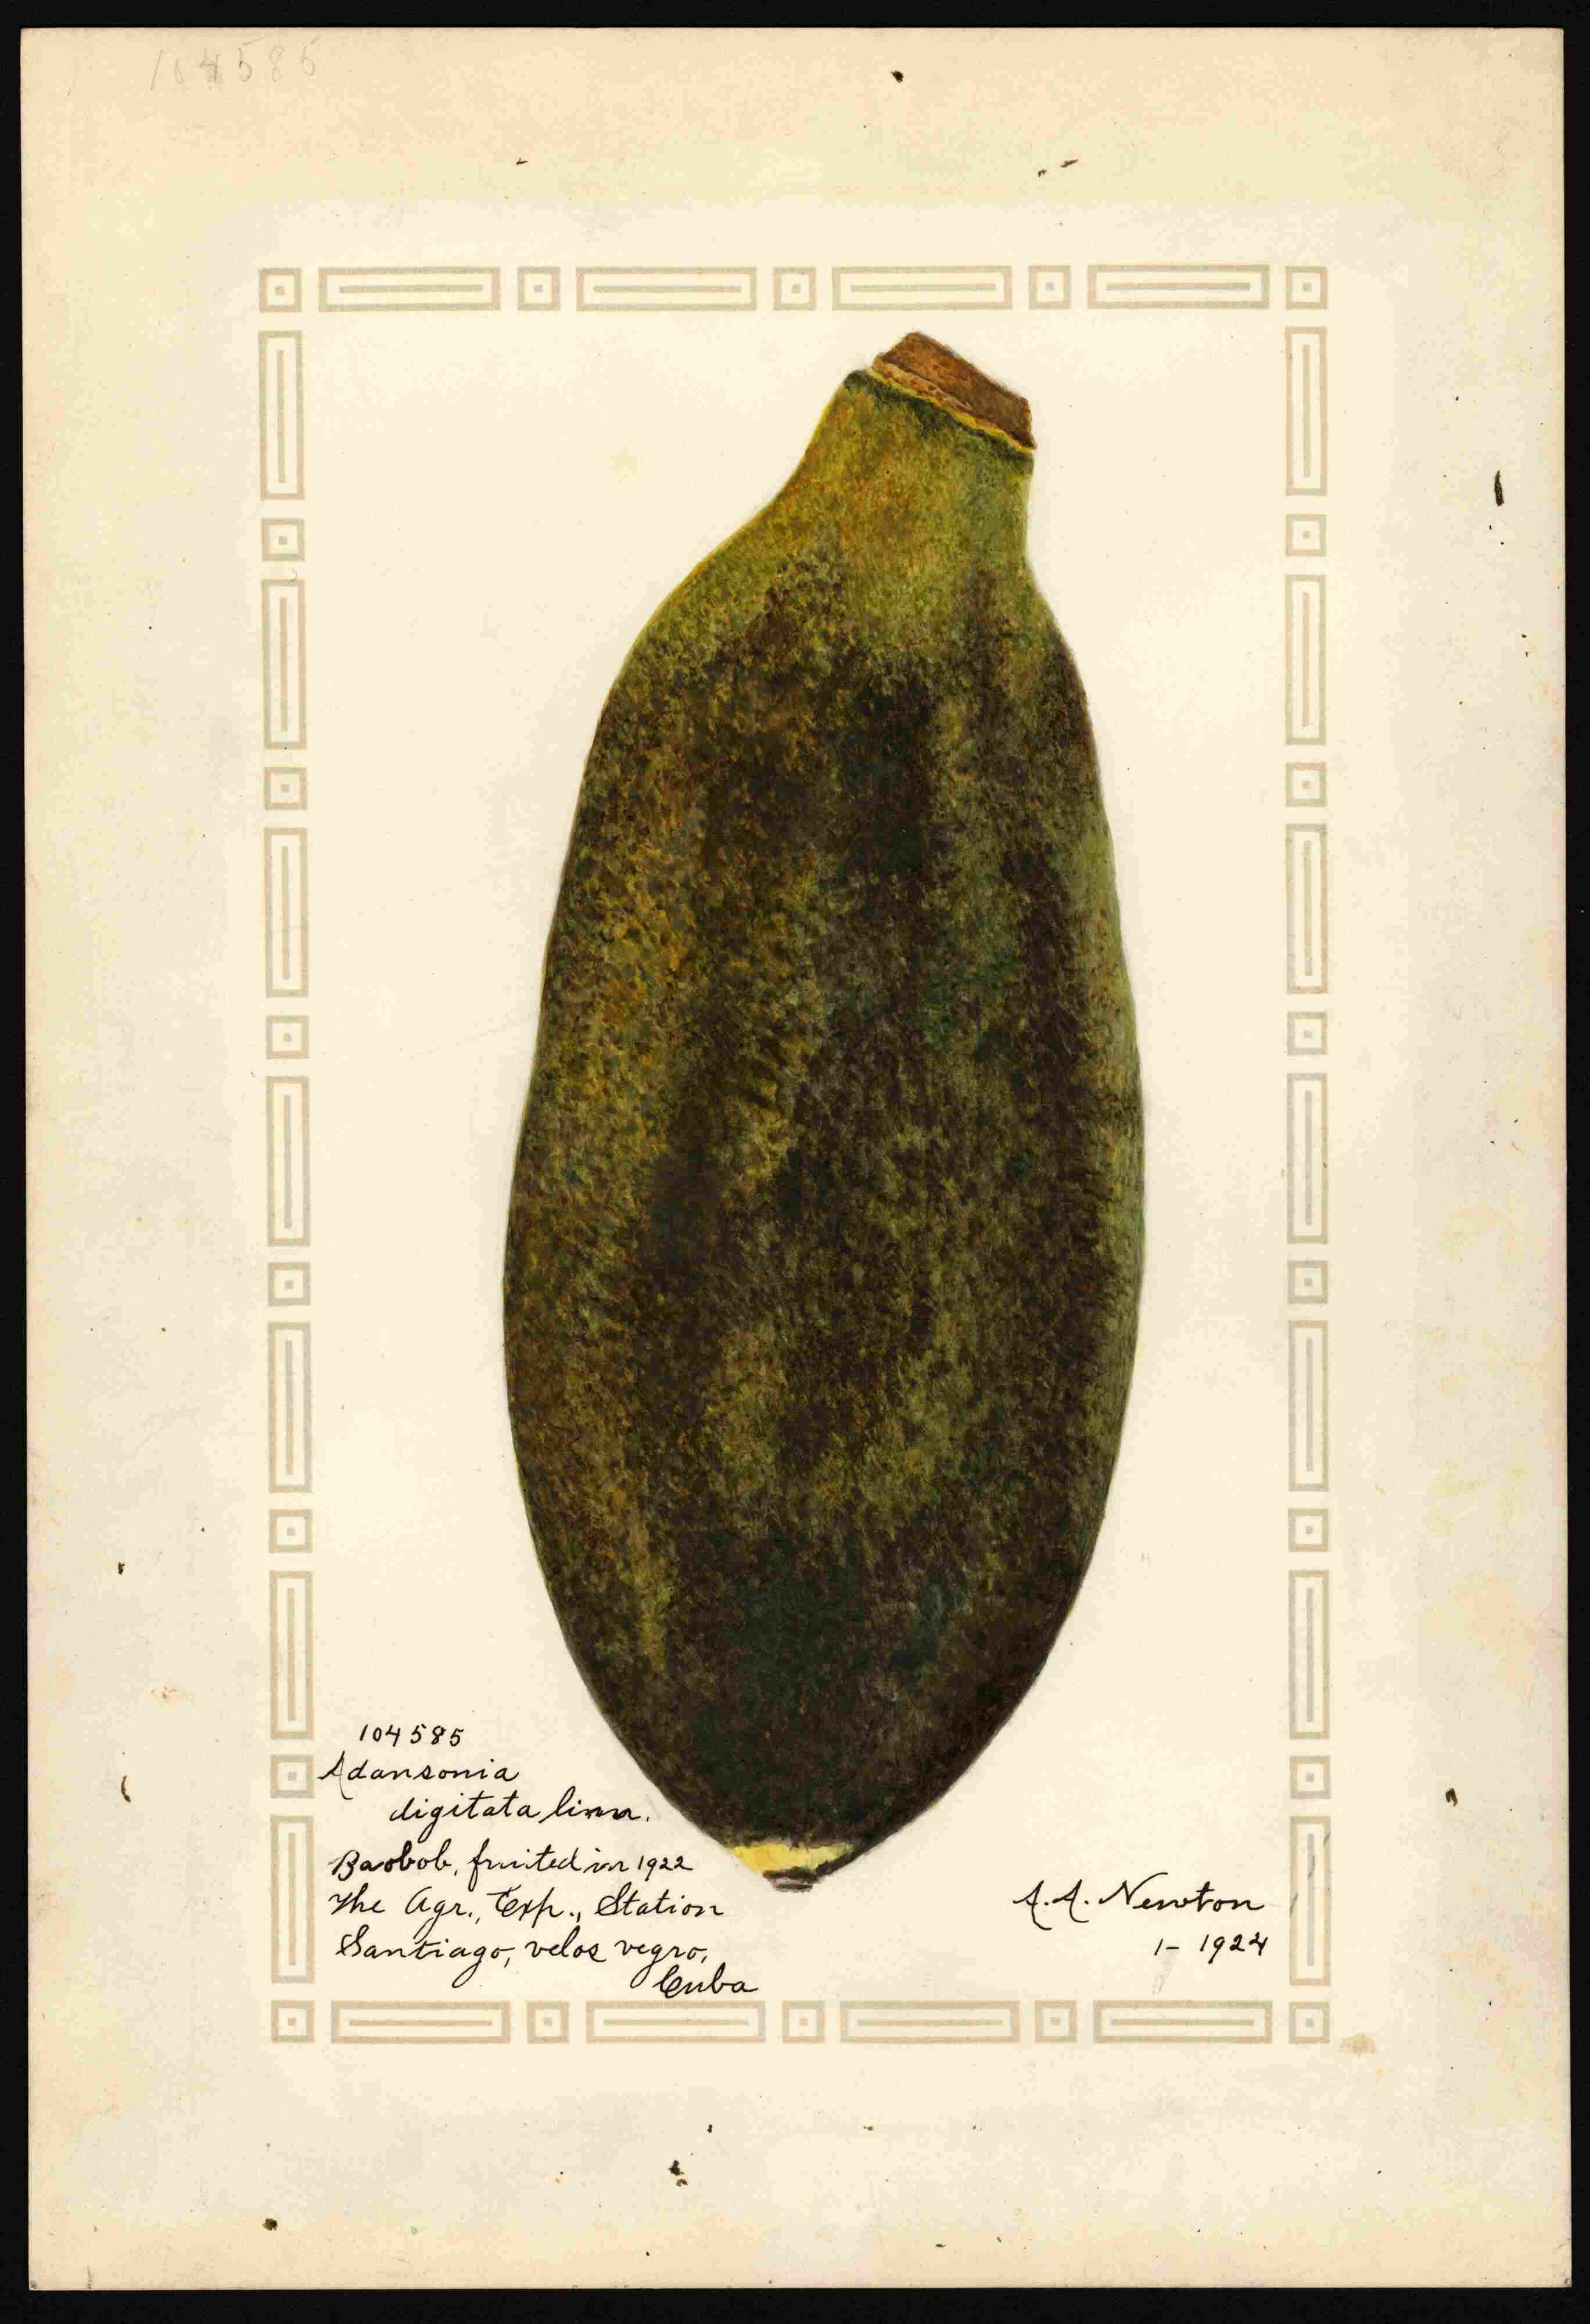 104585
104585
Adansonia
digitata linn.
Baobob, fruited in 1922
The Agr., Exp., Station
Santiago, velos vegro,
Cuba
A.A. Newton
1- 1924